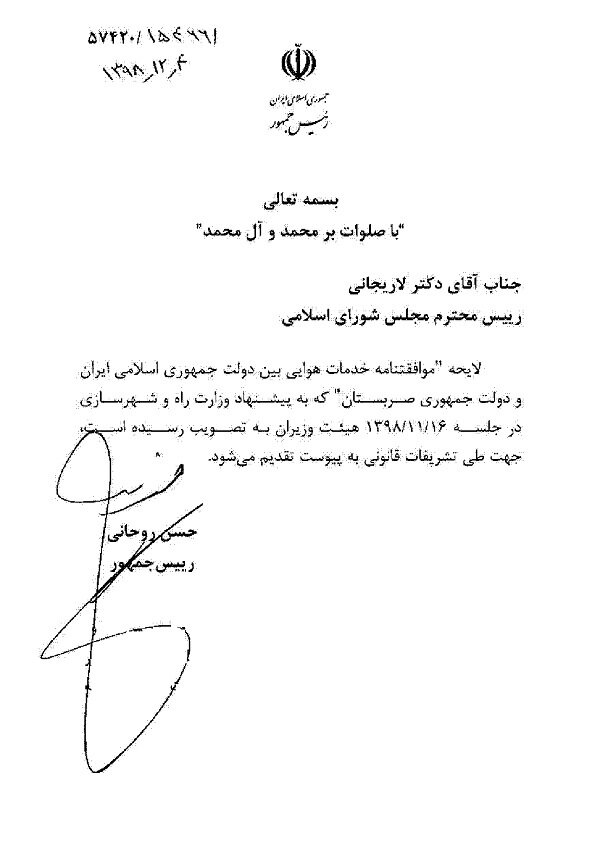 ۵۷۴۲۰/۱۵۴۹۶۱
۱۳۹۸_۱۲_۴
جمهوری اسلامی ایران
رئیس جمهور
بسمه تعالی
"با صلوات بر محمد و آل محمد"
جناب آقای دکتر لاریجانی
رییس محترم مجلس شورای اسلامی
لایحه "موافقتنامه خدمات هوایی بین دولت جمهوری اسلامی ایران
و دولت جمهوری صربستان" که به پیشنهاد وزارت راه و شهرسازی
در جلسه ۱۳۹۸/۱۱/۱۶ هیئت وزیران به تصویب رسیده است،
جهت طی تشریفات قانونی به پیوست تقدیم می‌شود.
حسن روحانی
رییس‌جمهور